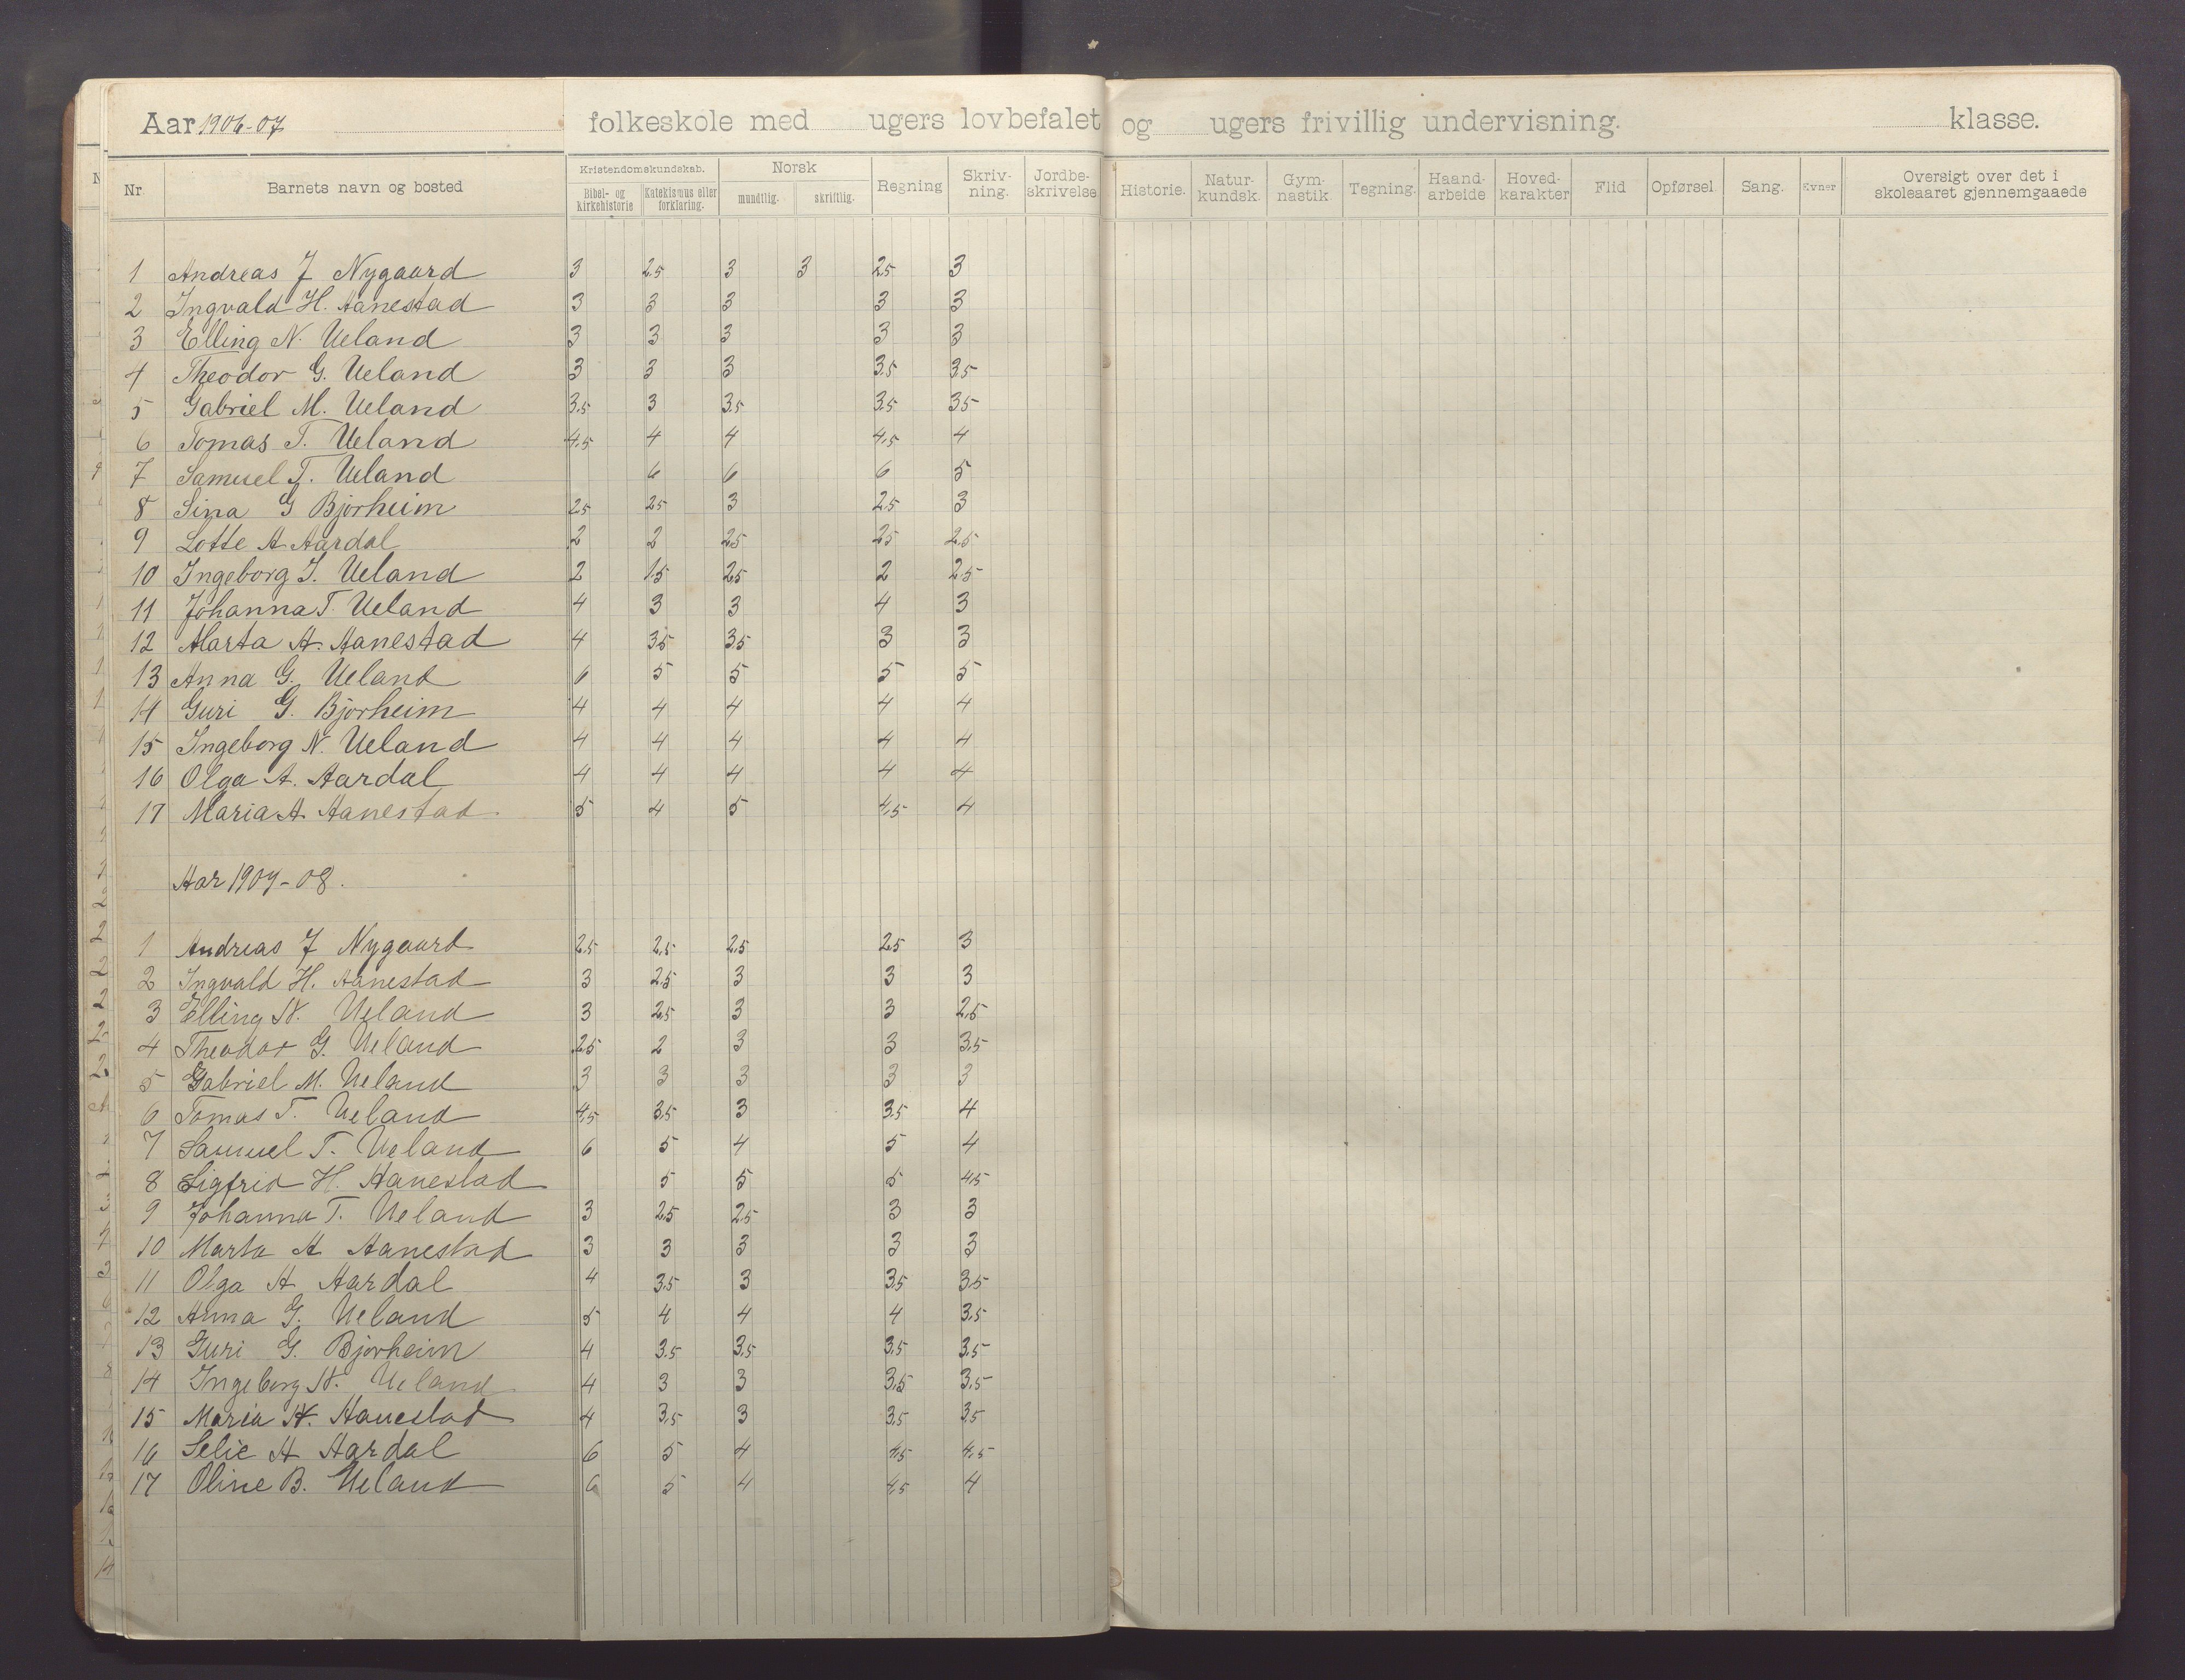 Aar 1906-07 folkeskole med ugers lovbefalet og ugers frivillig undervisning. klasse.
Nr. Barnets navn og bosted Kristendomskundskab. Bibel- og kirkehistorie Katekismus eller forklaring. Norsk mundtlig. skriftlig. Regning Skriv-ning. Jordbe-skrivelse Historie. Natur-kundsk. Gym-nastik. Tegning. Haand-arbeide Hoved-karakter Flid Opførsel. Sang. Evner Oversigt over det i skoleaaret gjennemgaaede
1 Andreas J Nygaard 3 2.5 3 3 2.5 3
2 Ingvald H. Aanestad 3 3 3 3 3
3 Elling N. Ueland 3 3 3 3 3
4 Theodor G. Ueland 3 3 3 3.5 3.5
5 Gabriel M. Ueland 3.5 3 3.5 3.5 3.5
6 Tomas T. Ueland 4.5 4 4 4.5 4
7 Samuel T. Ueland 6 6 6 5
8 Sina G Bjørheim 2.5 2.5 3 2.5 3
9 Lotte A Aardal 2 2 2.5 2.5 2.5
10 Ingeborg I. Ueland 2 1.5 2.5 2 2.5
11 Johanna T. Ueland 4 3 3 4 3
12 Marta A. Aanestad 4 3.5 3.5 3 3
13 Anna G. Ueland 6 5 5 5 5
14 Guri G. Bjørheim 4 4 4 4 4
15 Ingeborg N. Ueland 4 4 4 4 4
16 Olga A. Aardal 4 4 4 4 4
17 Maria A Aanestad 5 4 5 4.5 4
Aar 1907-08.
1 Andreas J Nygaard 2.5 2.5 2.5 2.5 3
2 Ingvald H. Aanestad 3 2.5 3 3 3
3 Elling N. Ueland 3 2.5 3 3 2.5
4 Theodor G. Ueland 2.5 2 3 3 3.5
5 Gabriel M. Ueland 3 3 3 3 3
6 Tomas T. Ueland 4.5 3.5 3 3.5 4
7 Samuel T. Ueland 6 5 4 5 4
8 Sigfrid H. Aanestad 5 5 5 4.5
9 Johanna T. Ueland 3 2.5 2.5 3 3
10 Marta A Aanestad 3 3 3 3 3
11 Olga A Aardal 4 3.5 3 3.5 3.5
12 Anna G. Ueland 5 4 4 4 3.5
13 Guri G. Bjørheim 4 3.5 3.5 3.5 3.5
14 Ingeborg N. Ueland 4 3 3 3.5 3.5
15 Maria A. Aanestad 4 3.5 3 3.5 3.5
16 Selie A Aardal 6 5 4 4.5 4.5
17 Oline B. Ueland 6 5 4 4.5 4